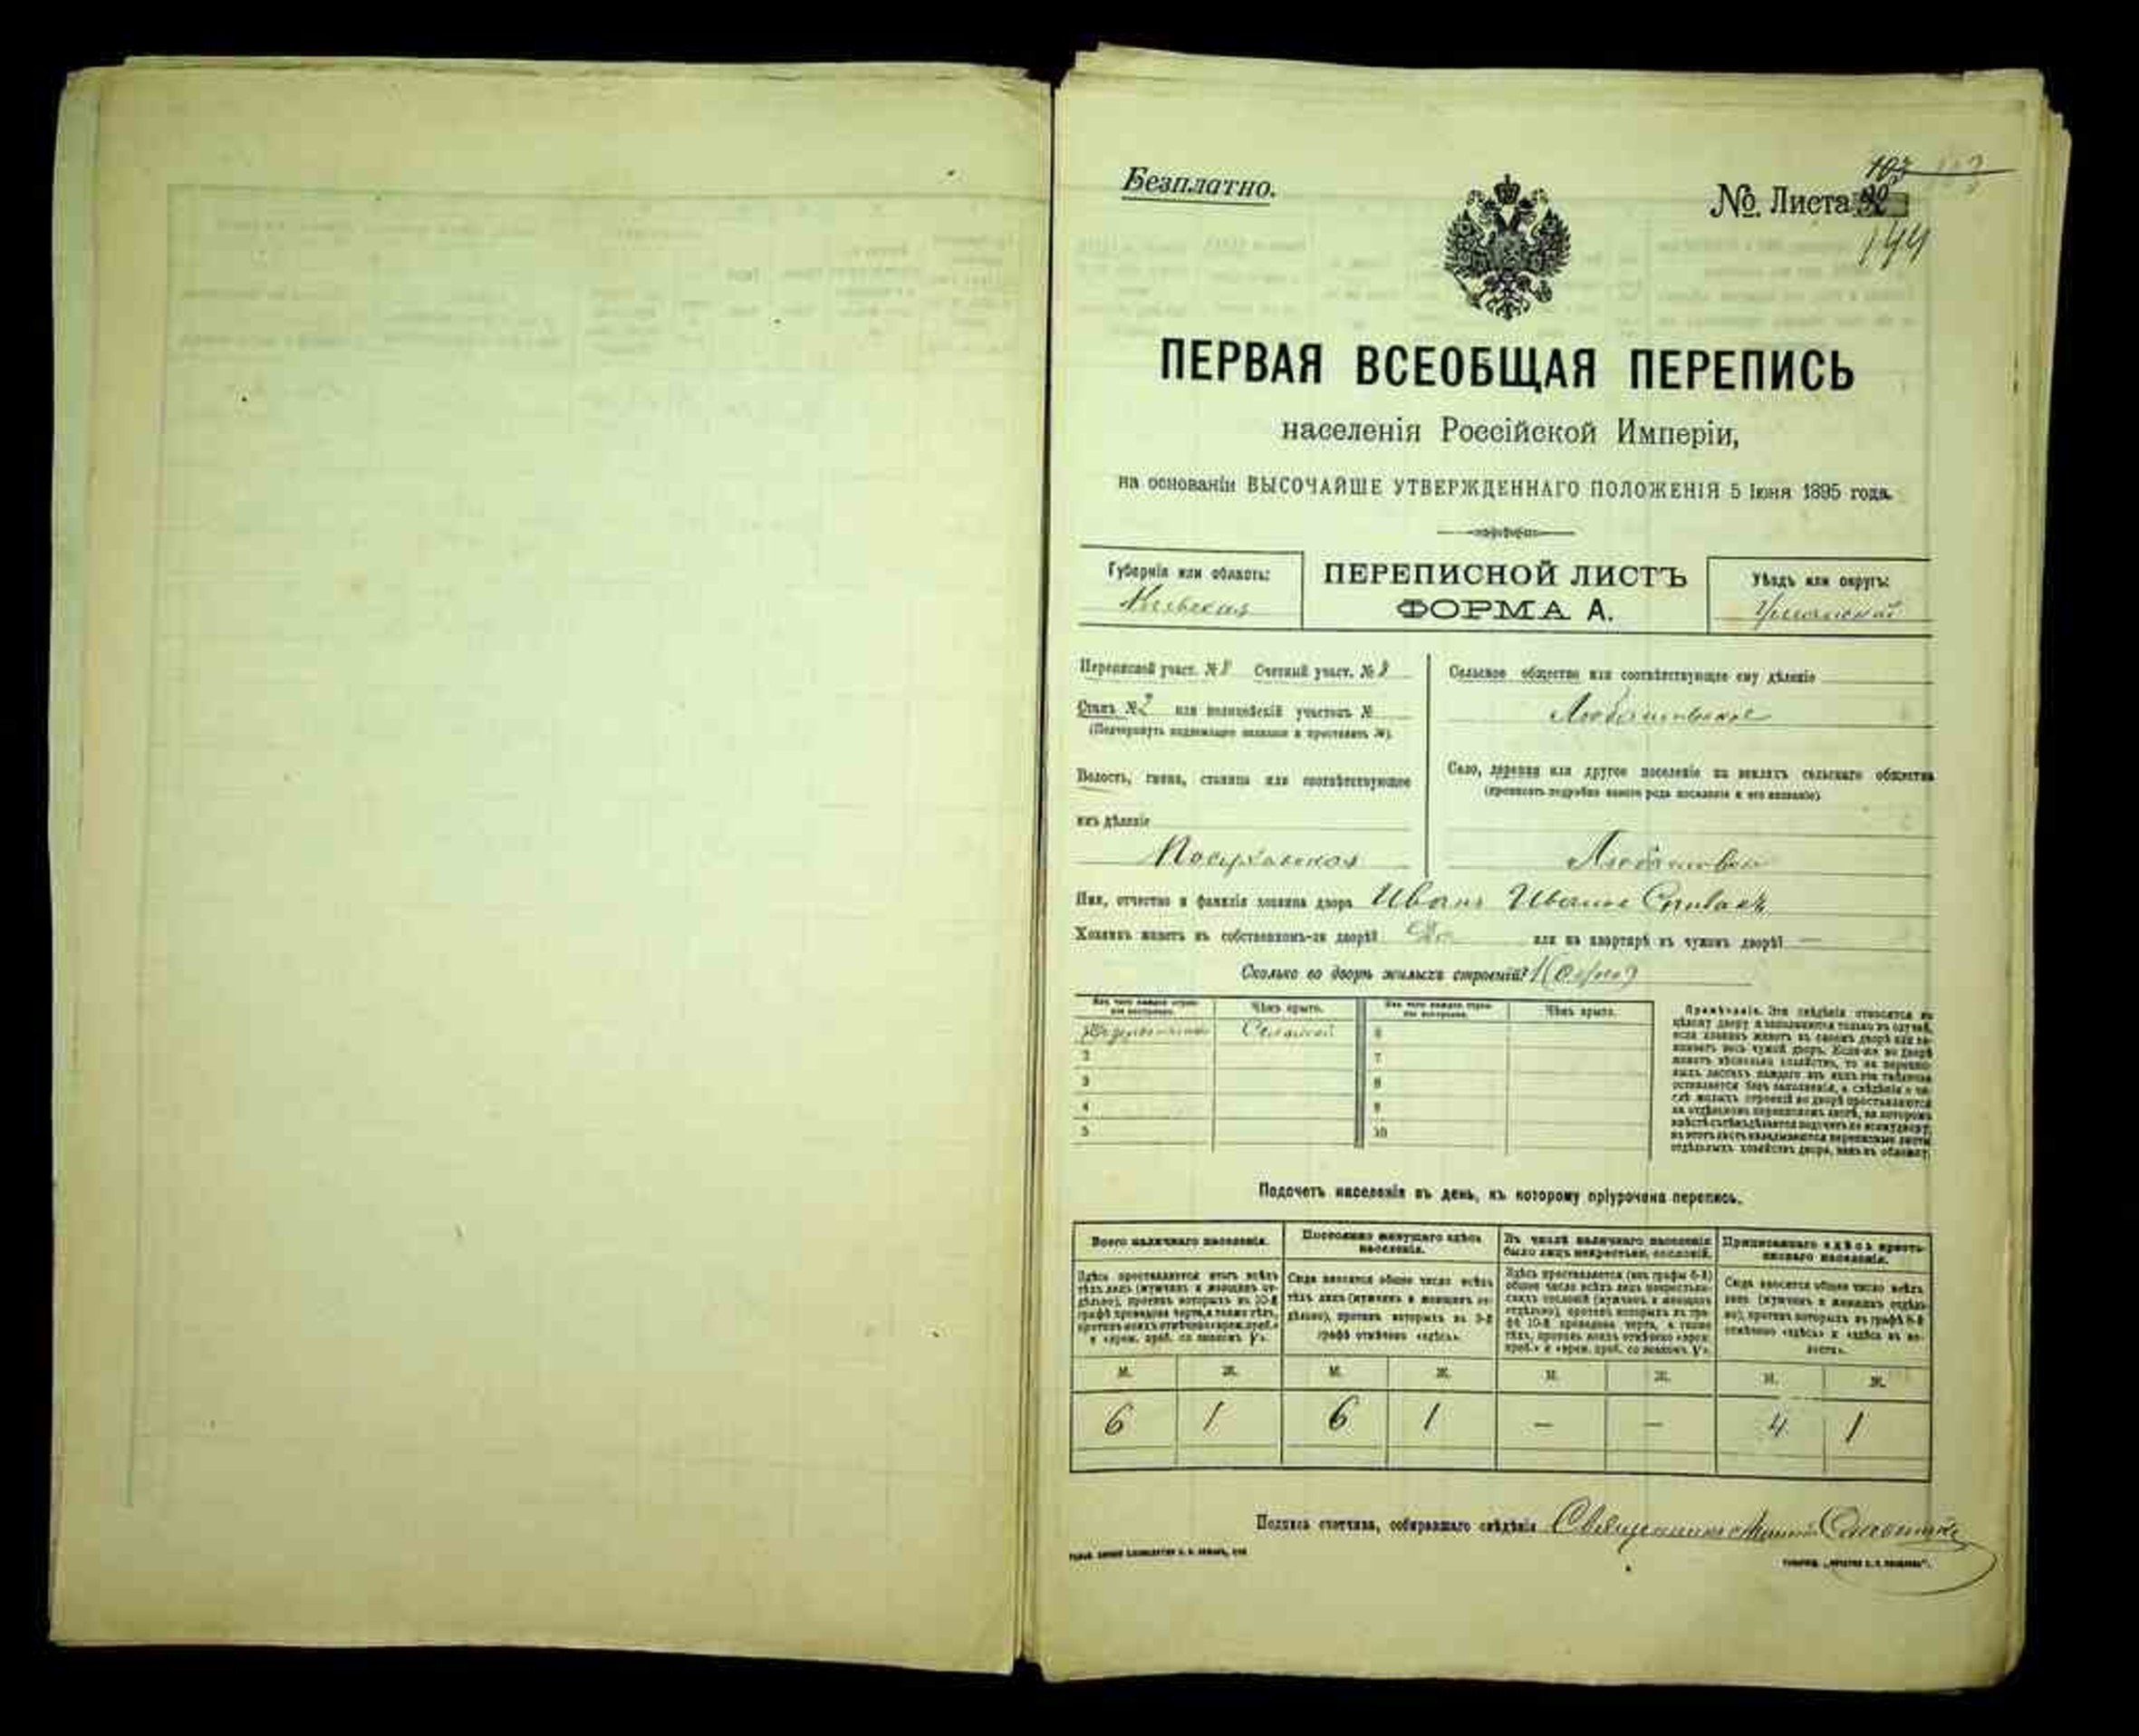 Безплатно.
№ Листа
144
ПЕРВАЯ ВСЕОБЩАЯ ПЕРЕПИСЬ
населенія Россійской Имперіи,
на основаніи ВЫСОЧАЙШЕ УТВЕРЖДЕННАГО ПОЛОЖЕНІЯ 5 Іюня 1895 года.
Губернія или область:
Кіевская
ПЕРЕПИСНОЙ ЛИСТЪ
ФОРМА А.
Уѣздъ или округъ:
Уманскій
Переписной участ. № 8 Счетный участ. № 8
Станъ № 2 или полицейскій участокъ №
(Подчеркнуть подлежащее названіе и проставить №).
Волость, гмина, станица или соотвѣтствующее
имъ дѣленіе
Посуховская
Сельское общество или соотвѣтствующее ему дѣленіе
Село, деревня или другое поселеніе на земляхъ сельскаго общества
(прописать подробно какого рода поселеніе и его названіе)
Имя, отчество и фамилія хозяина двора Иванъ Ивановъ Спивакъ
Хозяинъ живетъ въ собственномъ-ли дворѣ?
или на квартирѣ въ чужомъ дворѣ? —
Сколько во дворѣ жилыхъ строеній? 1 (одно)
Изъ чего каждое строеніе построено.
Чѣмъ крыто.
Изъ чего каждое строеніе построено.
Чѣмъ крыто.
Соломой
6
2
7
3
8
4
9
5
10
Примѣчаніе. Эти свѣдѣнія относятся къ
цѣлому двору и заполняются только въ случаѣ,
если хозяинъ живетъ въ своемъ дворѣ или за-
нимаетъ весь чужой дворъ. Если-же во дворѣ
живетъ нѣсколько хозяйствъ, то на перепис-
ныхъ листахъ каждаго изъ нихъ эта табличка
оставляется безъ заполненія, а свѣдѣнія о чи-
слѣ жилыхъ строеній во дворѣ проставляются
на отдѣльномъ переписномъ листѣ, на которомъ
вмѣстѣ съ тѣмъ дѣлается подсчетъ по всему двору;
въ этотъ листъ вкладываются переписные листы
отдѣльныхъ хозяйствъ двора, какъ въ обложку.
Подсчетъ населенія въ день, къ которому пріурочена перепись.
Всего наличнаго населенія.
Постоянно живущаго здѣсь
населенія.
Въ числѣ наличнаго населенія
было лицъ некрестьян. сословій.
Приписаннаго здѣсь кресть-
янскаго населенія.
Здѣсь проставляется итогъ всѣхъ
тѣхъ лицъ (мужчинъ и женщинъ от-
дѣльно), противъ которыхъ въ 10-й
графѣ проведена черта, а также тѣхъ,
противъ коихъ отмѣчено «врем. преб.»
и «врем. преб. со знакомъ V».
Сюда вносится общее число всѣхъ
тѣхъ лицъ (мужчинъ и женщинъ от-
дѣльно), противъ которыхъ въ 9-й
графѣ отмѣчено «здѣсь».
Здѣсь проставляется (изъ графы 6-й)
общее число всѣхъ лицъ некрестьян-
скихъ сословій (мужчинъ и женщинъ
отдѣльно), противъ которыхъ въ гра-
фѣ 10-й проведена черта, а также
тѣхъ, противъ коихъ отмѣчено «врем.
преб.» и «врем. преб. со знакомъ V».
Сюда вносится общее число всѣхъ
лицъ (мужчинъ и женщинъ отдѣль-
но), противъ которыхъ въ графѣ 8-й
отмѣчено «здѣсь» и «здѣсь въ во-
лости».
М. Ж. М. Ж. М. Ж. М. Ж.
6 1 6 1 — — 4 1
Подпись счетчика, собиравшаго свѣдѣнія Священникъ